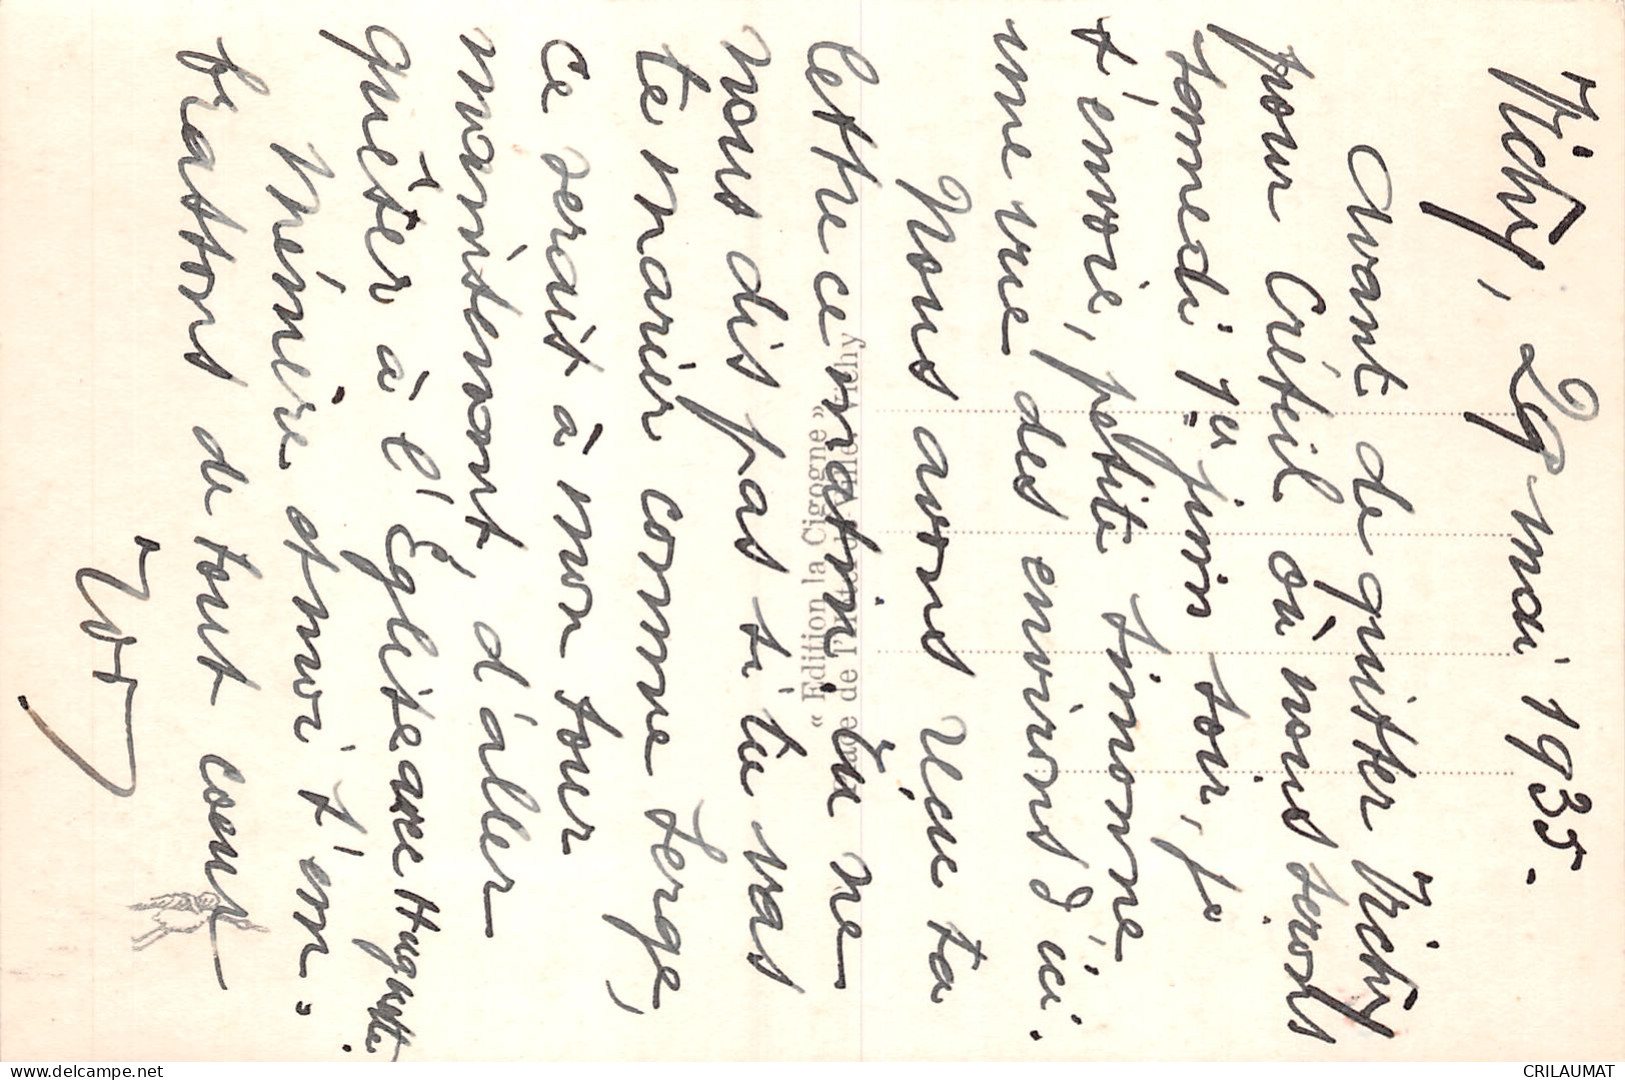 Vichy, 29 mai 1935.
Avant de quitter Vichy
pour Créteil où nous serons
samedi 1er juin soir, je
t'envoie, petite Simonne,
une vue des environs d'ici.
Nous avons reçu ta
lettre ce matin. Tu ne
nous dis pas si tu vas
te marier comme Serge,
ce serait à mon tour
maintenant, d'aller
quêter à l'Église avec Huguette.
Mémère et moi t'em-
brassons de tout coeur
« Edition la Cigogne »
de l'Hôtel de Ville Vichy
delcampe.net
CRILAUMAT